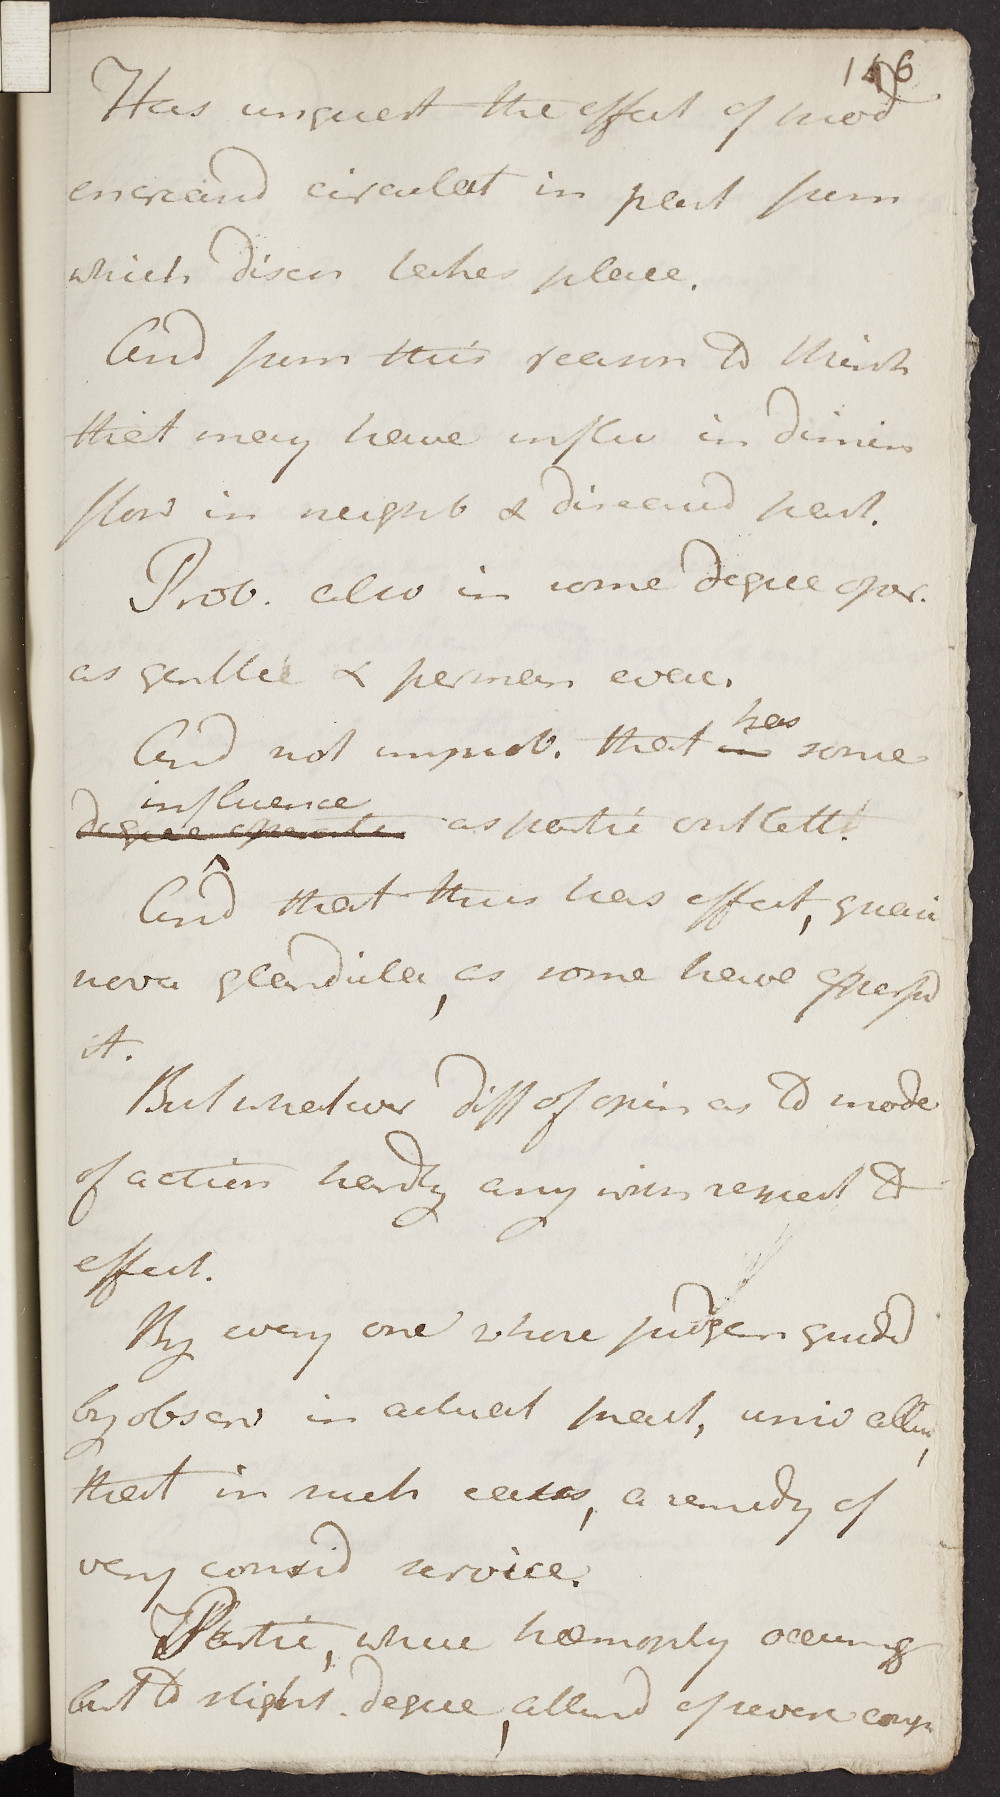 146
Has unquest the effect of mod
encreasd circulat in part from
which disch takes place.
And from this reason to think
that may have influ in dimin
flow in neighb & diseasd part.
Prob. also in some degree oper.
as gentle & perman evac.
And not improb. that in has some
degree operate influence as partic outlett.
And that thus has effect, quasi
nova glandula, as some have expressd
it.
But whatever diff of opin as to mode
of action hardly any with respect to
effect.
By every one whose judgem guided
by observ in actual pract, univ allow,
that in such cases, a remedy of
very consid service.
Partic, where hæmopty occurring
but to slight degree, attend of severe cough